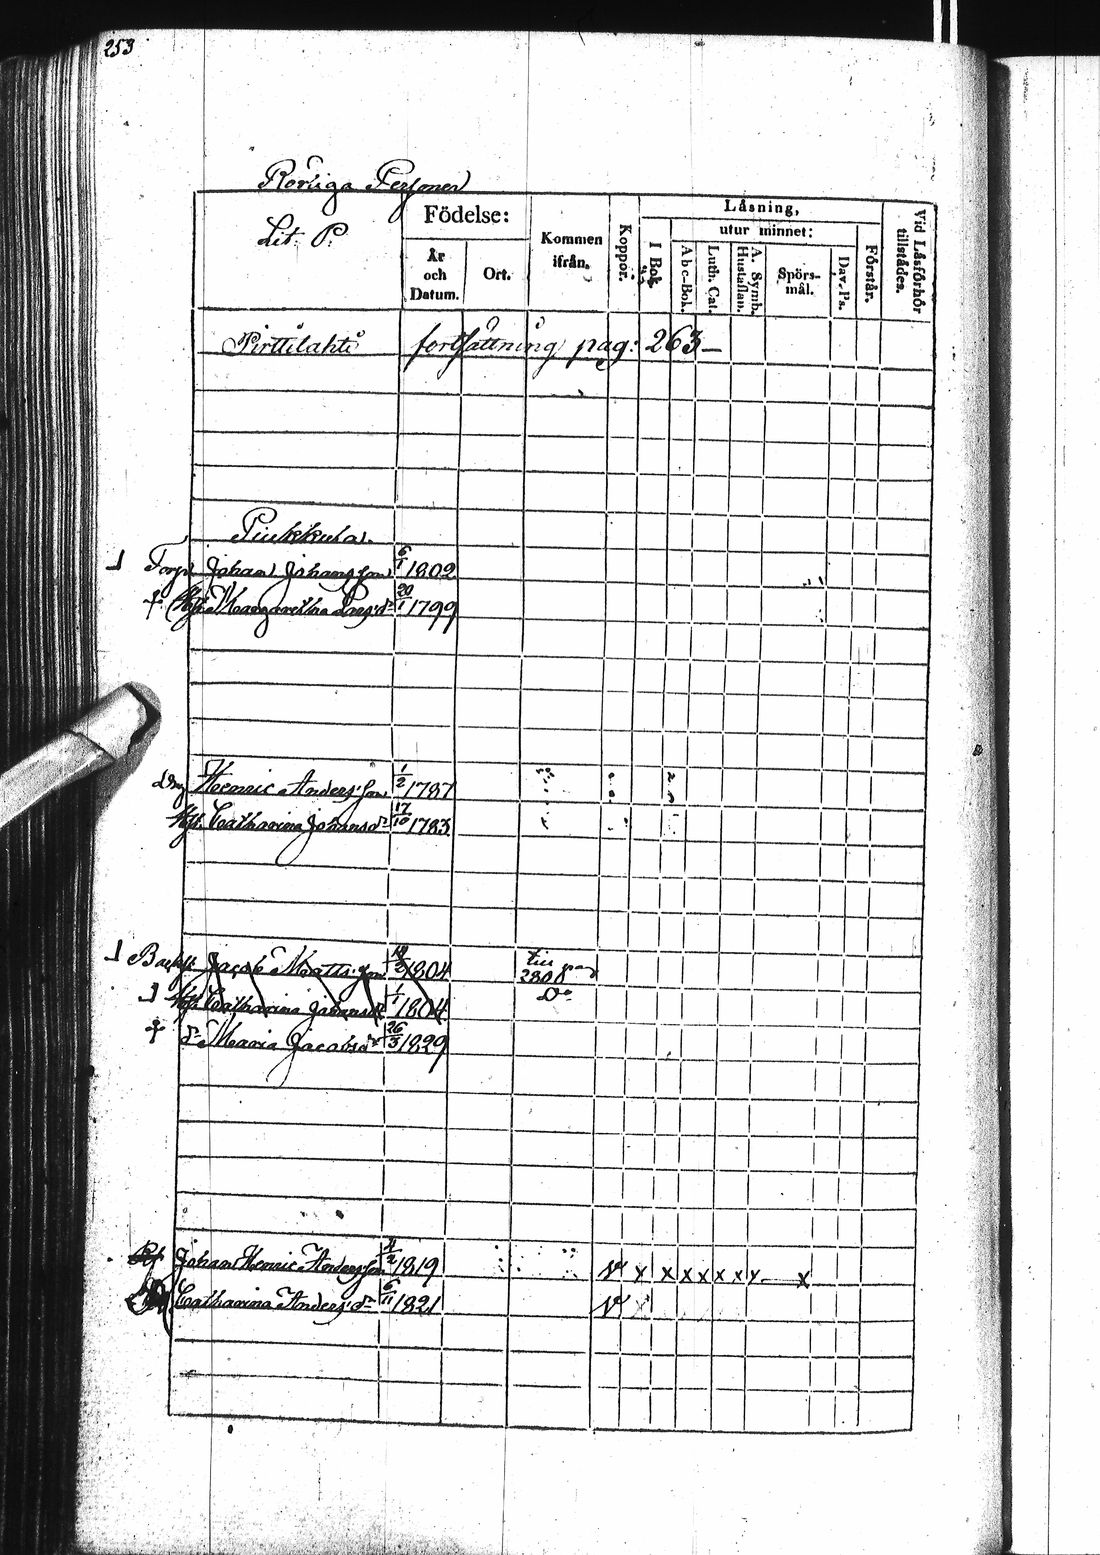 253
Rörliga Personer
Lit. P.
Födelse:
År och Datum.
Ort.
Kommen ifrån.
Koppor.
Läsning,
utur minnet:
I Bok.
Abc-Bok.
Luth. Cat.
A. Symb. Hustaflan.
Spörs-mål.
Dav. Ps.
Förstår.
Vid Läsförhör tillstädes.
Pirttilahti fortsättning pag: 263 —
Piukkula.
Torp. Johan Johansson 6/1 1802
† Hust. Margaretha Larsdr 20/1 1799
Drg Henric Andersson 1/2 1787
Hust. Catharina Johansdr 17/10 1783
Backst. Jacob Mattsson 1804 till 280 pag
Hust. Catharina Johansdr 1/1 1804 Do
† dr Maria Jacobsdr 26/3 1829
Johan Henric Andersson 4/2 1819 v x x x x x x x — x
Catharina Andersdr 6/11 1821 v x